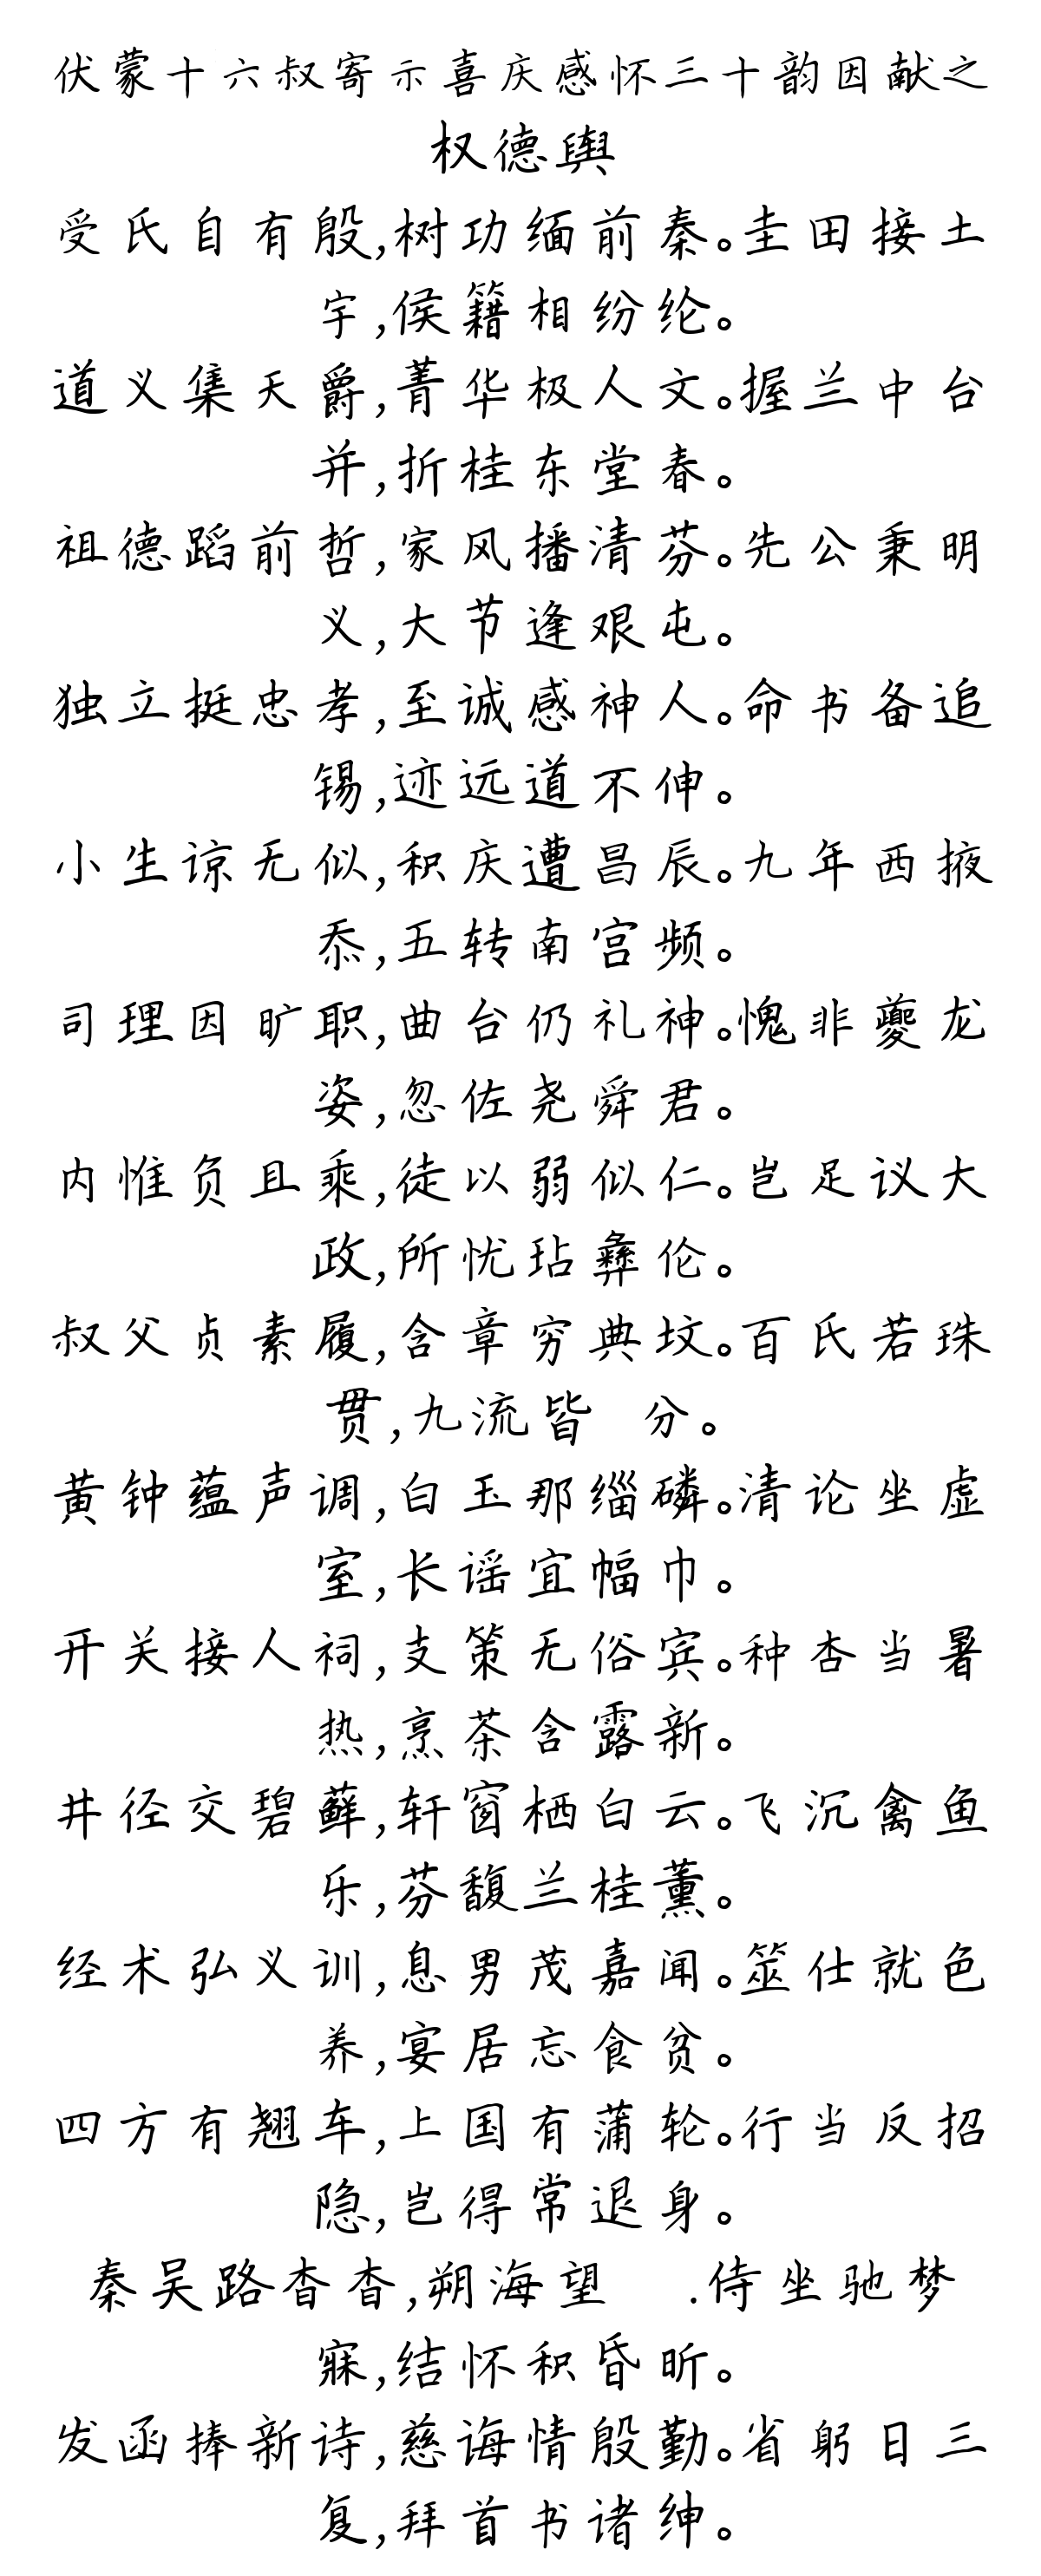 伏蒙十六叔寄示喜庆感怀三十韵因献之
权德舆
受氏自有殷,树功缅前秦。圭田接土
宇,侯籍相纷纶。
道义集天爵,菁华极人文。握兰中台
并,折桂东堂春。
祖德蹈前哲,家风播清芬。先公秉明
义,大节逢艰屯。
独立挺忠孝,至诚感神人。命书备追
锡,迹远道不伸。
小生谅无似,积庆遭昌辰。九年西掖
忝,五转南宫频。
司理因旷职,曲台仍礼神。愧非夔龙
姿,忽佐尧舜君。
内惟负且乘,徒以弱似仁。岂足议大
政,所忧玷彝伦。
叔父贞素履,含章穷典坟。百氏若珠
贯,九流皆 分。
黄钟蕴声调,白玉那缁磷。清论坐虚
室,长谣宜幅巾。
开关接人祠,支策无俗宾。种杏当暑
热,烹茶含露新。
井径交碧藓,轩窗栖白云。飞沉禽鱼
乐,芬馥兰桂薰。
经术弘义训,息男茂嘉闻。筮仕就色
养,宴居忘食贫。
四方有翘车,上国有蒲轮。行当反招
隐,岂得常退身。
秦吴路杳杳,朔海望 .侍坐驰梦
寐,结怀积昏昕。
发函捧新诗,慈诲情殷勤。省躬日三
复,拜首书诸绅。